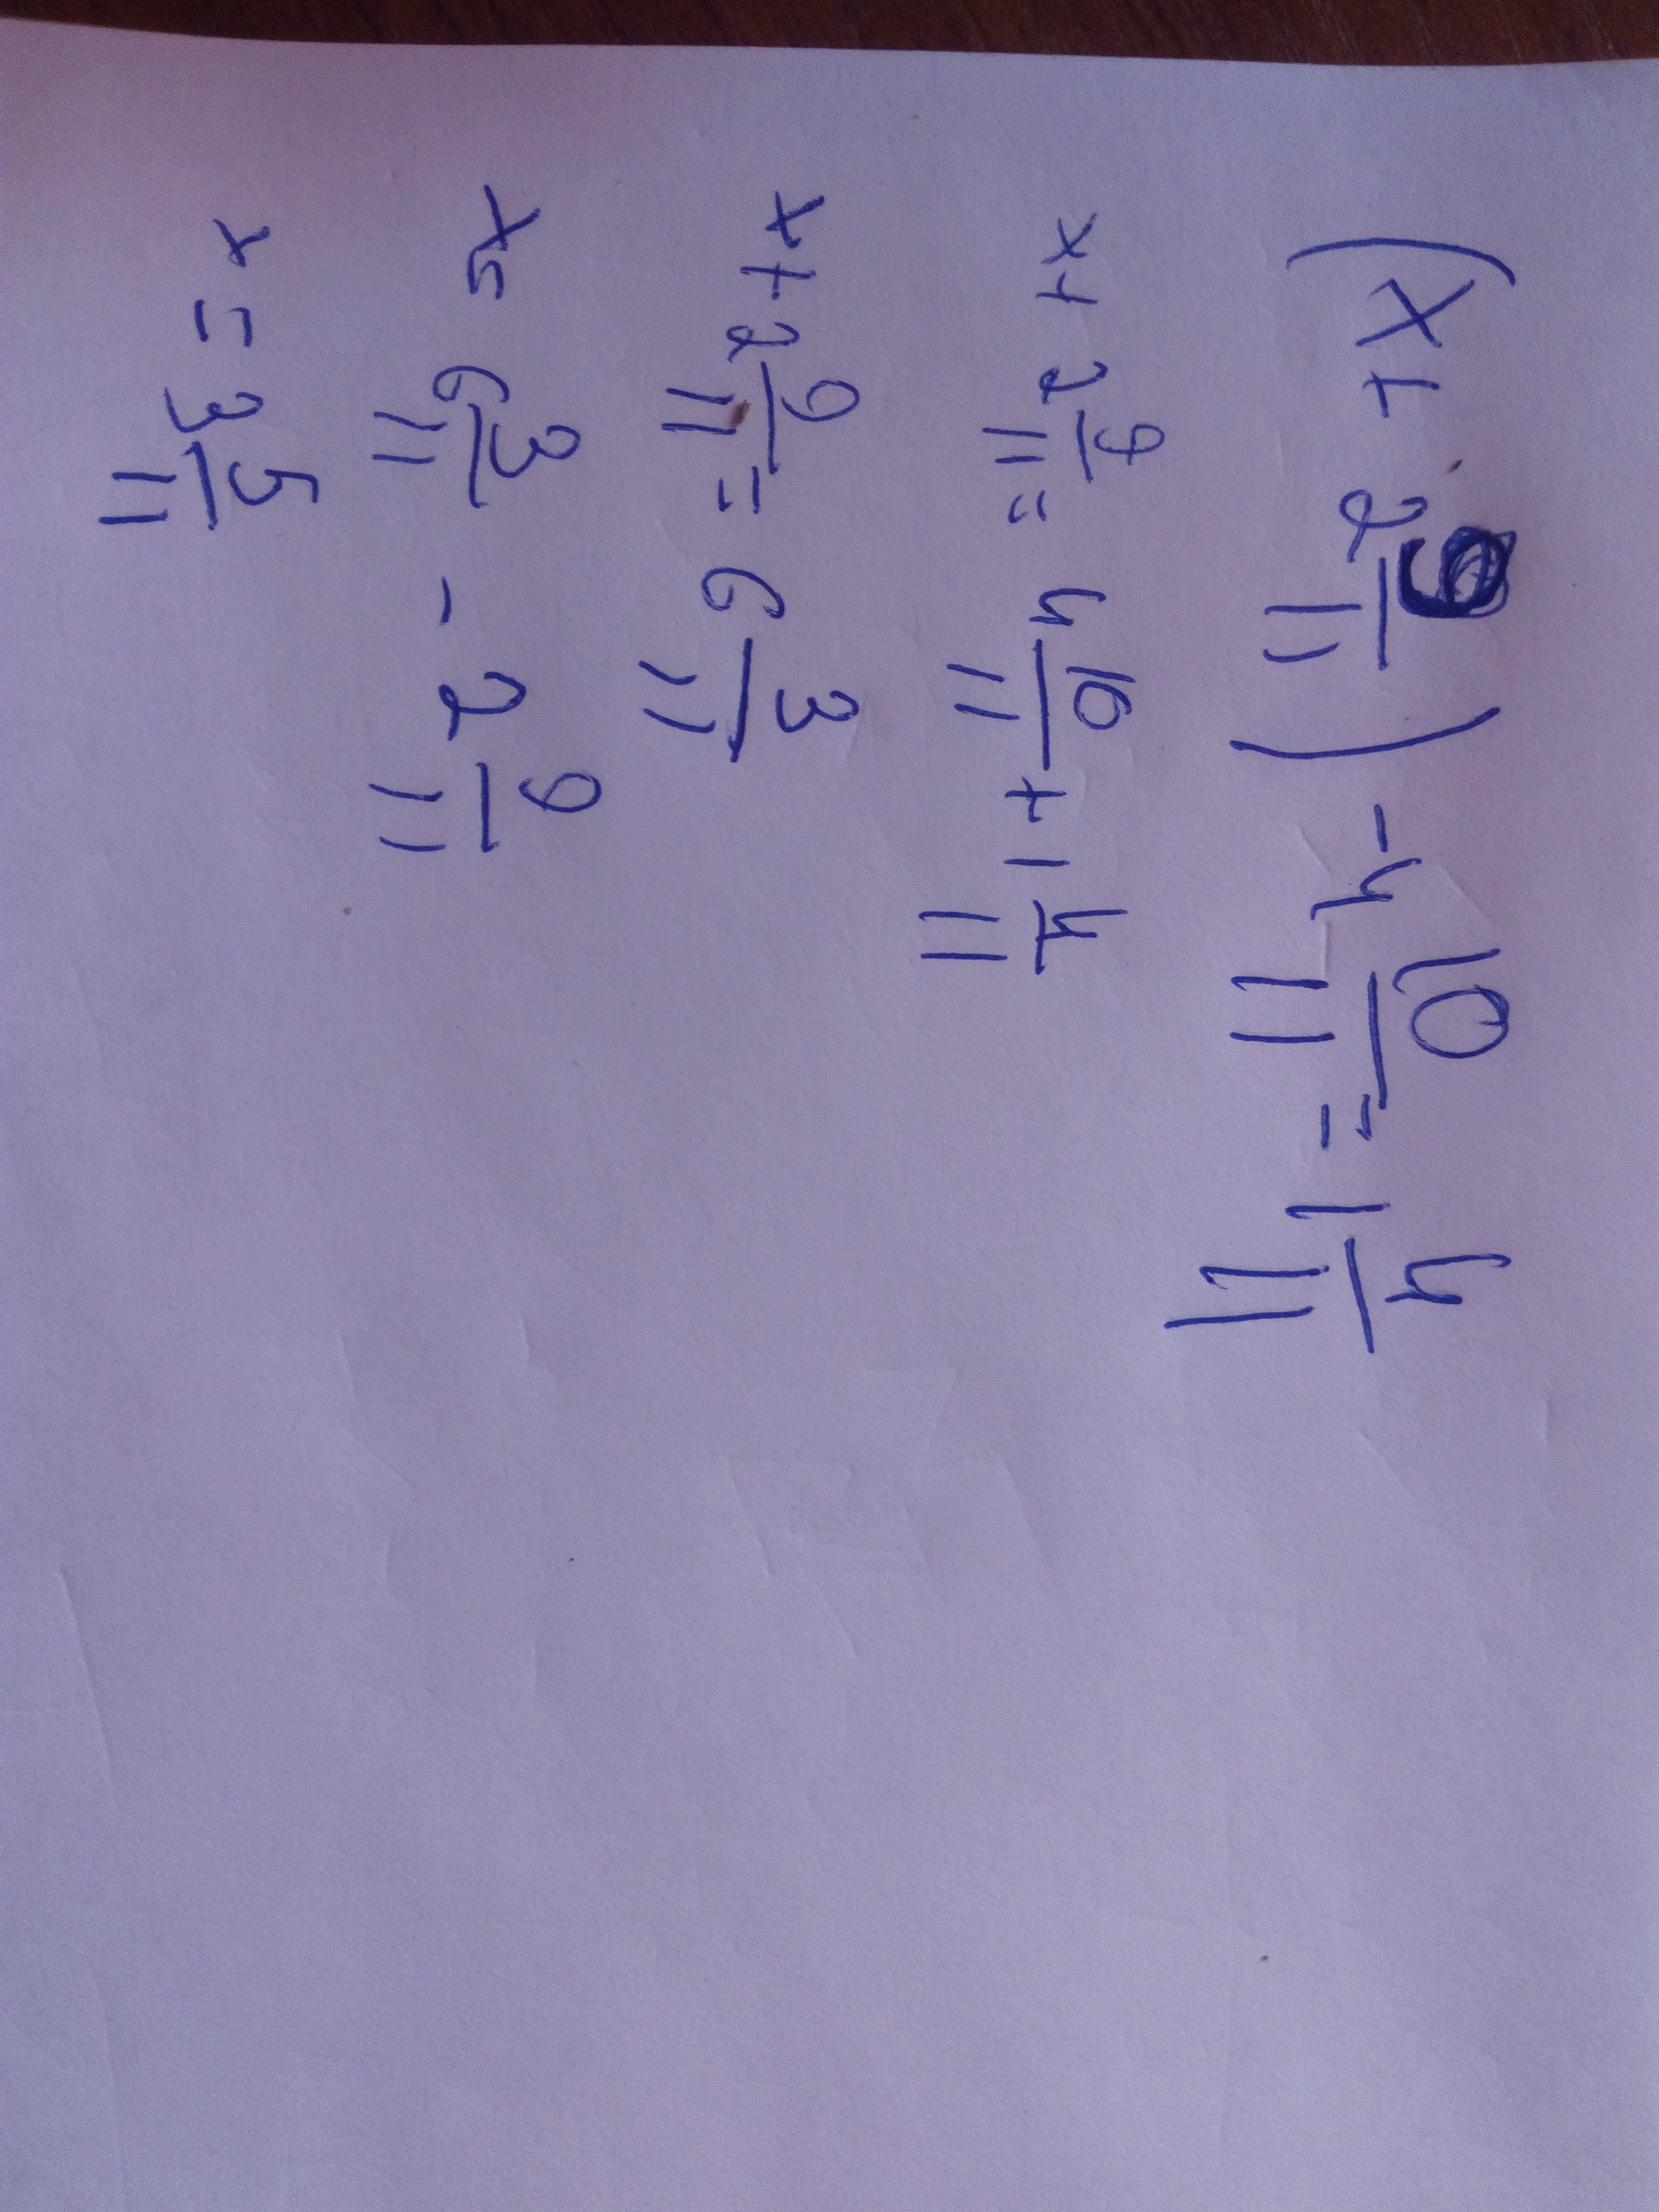 (x + 2 9/11) - 4 10/11 = 1 4/11
x + 2 9/11 = 4 10/11 + 1 4/11
x + 2 9/11 = 6 3/11
x = 6 3/11 - 2 9/11
x = 3 5/11